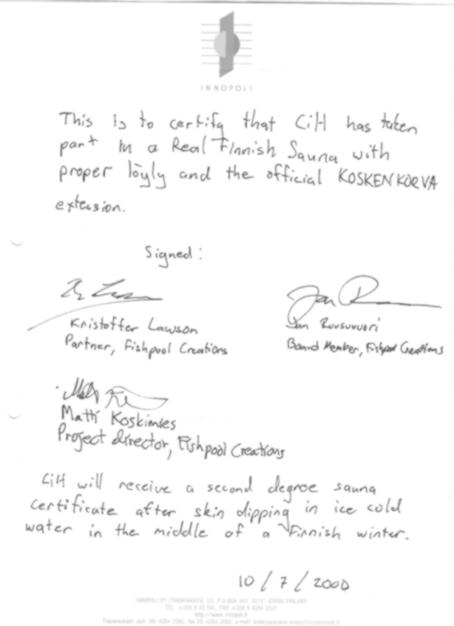 INNOPOLI
This is to certify that CiH has taken
part in a Real Finnish Sauna with
proper löyly and the official KOSKENKORVA
extension.
Signed:
Kristoffer Lawson
Partner, Fishpool Creations
Jan Ruusuvuori
Board Member, Fishpool Creations
Matti Koskimies
Project director, Fishpool Creations
CiH will receive a second degree sauna
certificate after skin dipping in ice cold
water in the middle of a Finnish winter.
10/7/2000